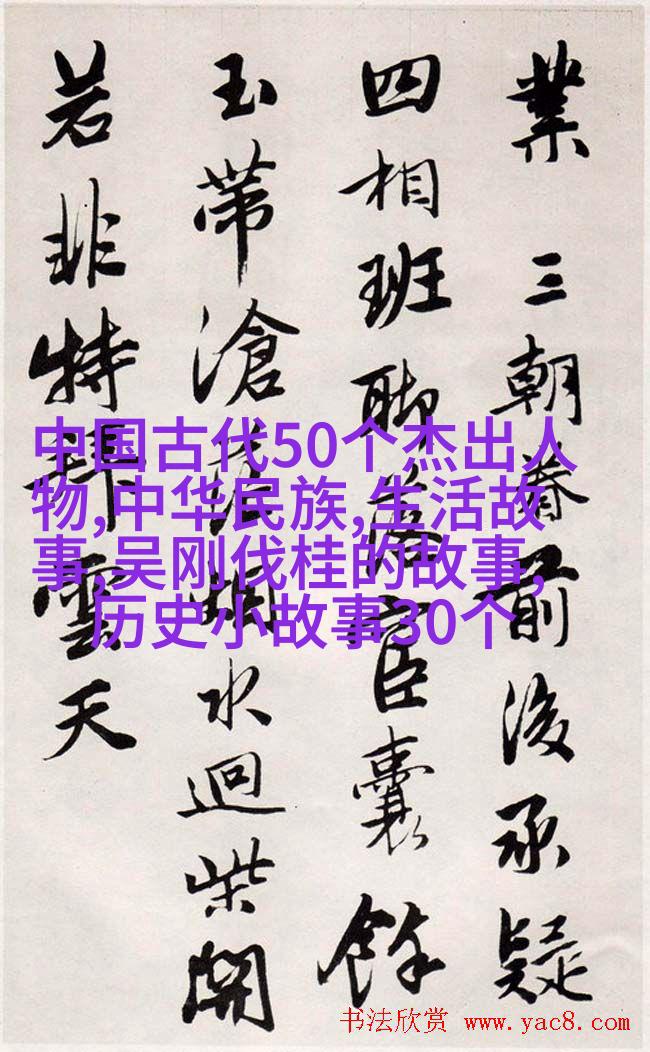 業 三朝眷前後承疑
四相班聯臣囊餘
玉帶滄浪烟水迴柴開
若非特拜雲天
中国古代50个杰出人
物,中华民族,生活故
事,吴刚伐桂的故事,
历史小故事30个
书法欣赏 www.yac8.com